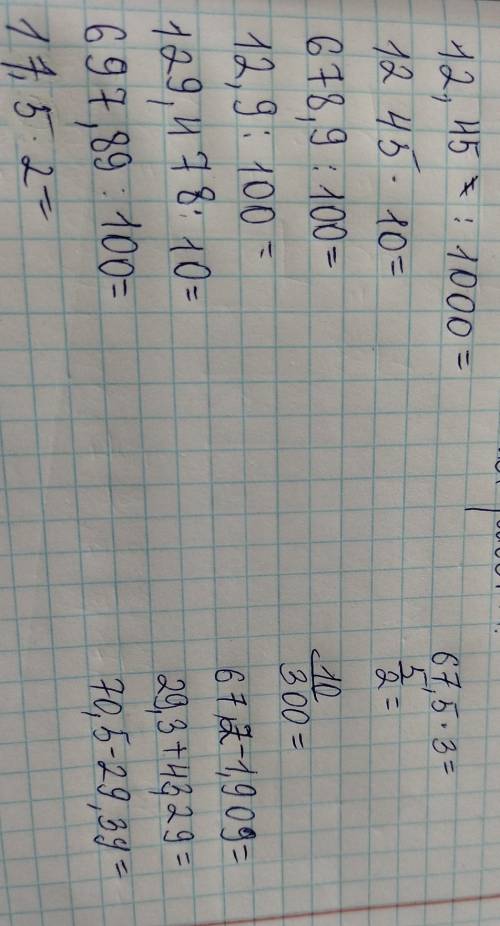 12,45 : 1000 =
12 45 · 10 =
678,9 : 100 =
12,9 : 100 =
129,478 : 10 =
697,89 : 100 =
17,5 · 2 =
67,5 · 3 =
5/2 =
10/300 =
67,2 - 1,909 =
29,3 + 4,329 =
70,5 - 29,39 =